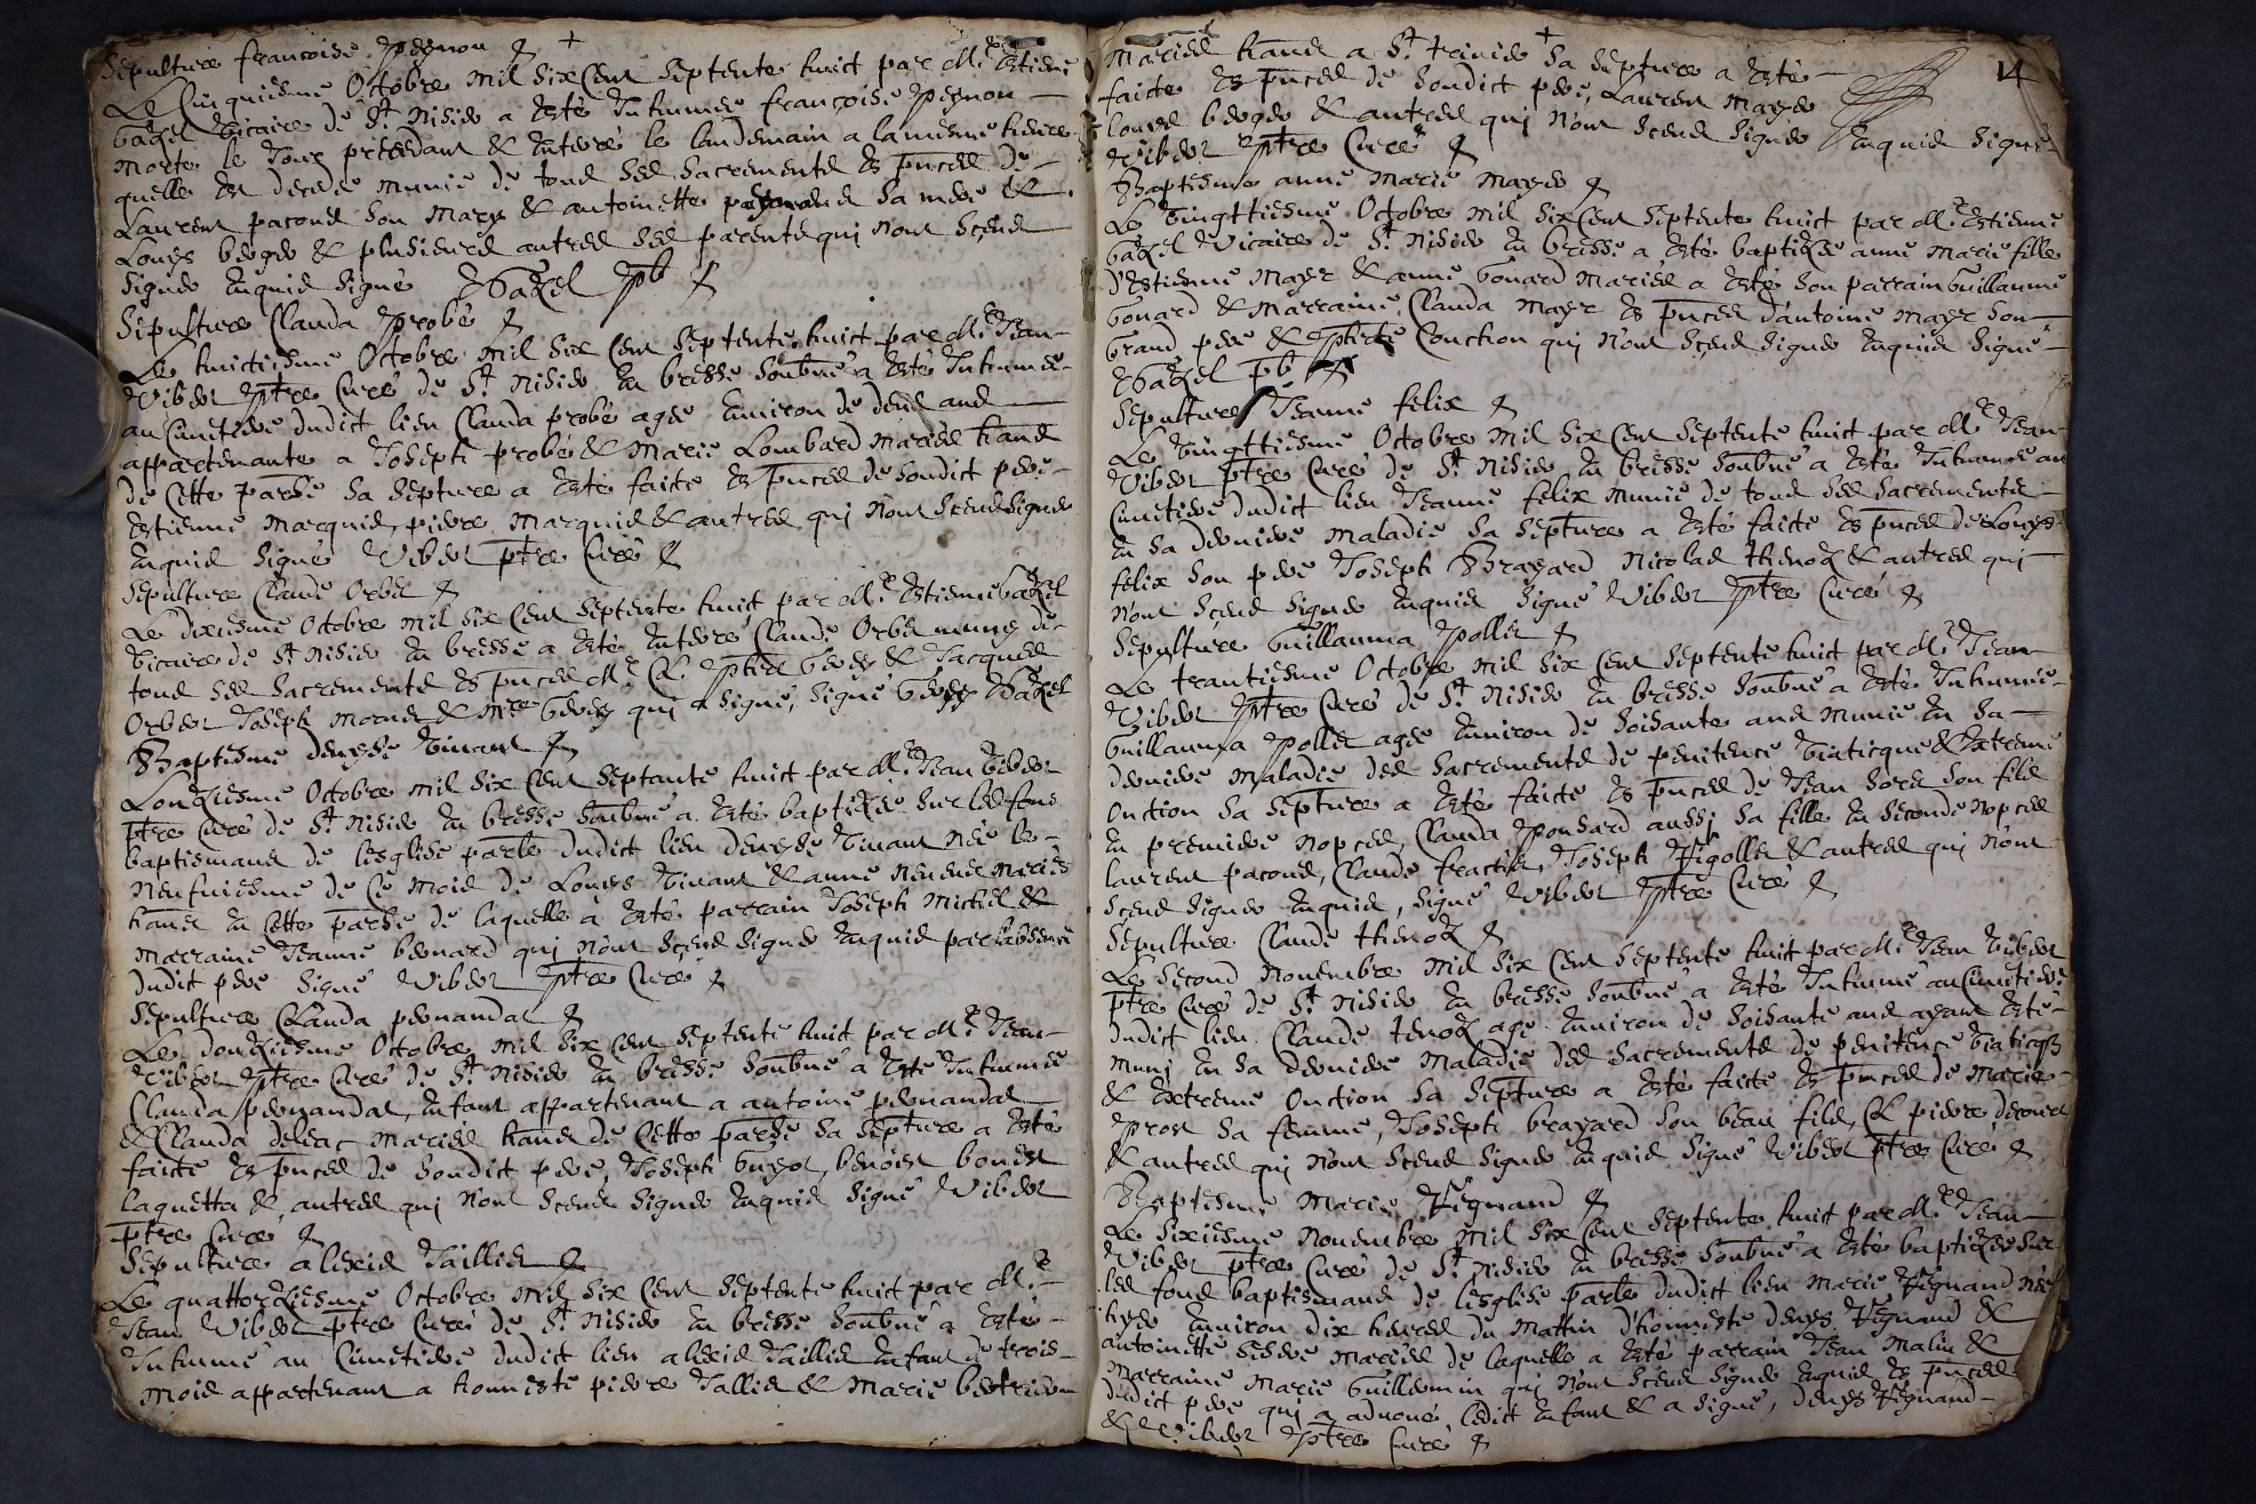 Sepulture francoise Peynon
Le Cinquiesme Octobre mil six Cent septente huict par Mre Estienne
bazel vicaire de St Nisier a esté Inhumée françoise Peynon
morte le Jour precedant & enterré le landemain a la mesme heure
quelle est decedé munie de tous ses sacrements es pnces de
Laurent pacoud son mary & antoinette sa mere &
Louys & plusieurs autres ses parents qui nont sceus
signer enquis signé Bazel Pb
Sepulture Clauda Probé
Le huictiesme Octobre mil six Cent septente huict par Mre Jean
Vibert Ptre Curé de St Nisier en bresse soubné a esté Inhumée
au Cimetiere dudict lieu Clauda probé agee environ de deux ans
appartenante a Joseph probé & Marie Lombard mariés hants
de Cette parsse sa septure a esté faicte es pnces de sondict pere
estienne marquis, pierre marquis & autres qui nont sceus signer
enquis signé Vibert ptre Curé
Sepulture Claude Orbet
Le dixiesme Octobre mil six Cent septente huict par Mre Estienne bazel
vicaire de St Nisier en bresse a esté enterré Claude Orbet muny de
tous ses sacrements es pnces Mre Cl. Ptre & Jacques
Orbet Joseph & Mre qui a signé, signé Bazel
Baptesme denyse Vinant
Lonziesme Octobre mil six Cent septante huict par Mre Jean Vibert
ptre Curé de St Nisier en bresse soubné a esté baptizée sur les fons
baptismaux de lesglise parle dudict lieu denyse Vinant née le
neufuiesme de Ce mois de Louys Vinant & anne mariés
hants en Cette parsse de laquelle a esté parrain Joseph Michel &
marraine Jeanne bernard qui nont sceus signer enquis par labsence
dudict pere signé Vibert Ptre Curé
Sepulture Clauda pernandat
Le douziesme Octobre mil six Cent septente huict par Mre Jean
Vibert Ptre Curé de St Nisier en bresse soubné a esté Inhumée
Clauda pernandat, enfant appartenant a antoine pernandat
& Clauda mariés hants de Cette parsse sa septure a esté
faicte es pnces de sondict pere, Joseph Guyot, benoist bonest
laquetta & autres qui nont sceus signer enquis signé Vibert
ptre Curé
Sepulture alexis Taillier
Le quattorziesme Octobre mil six Cent septente huict par Mre
Jean Vibert ptre Curé de St Nisier en bresse soubné a esté
Inhumé au Cimetiere dudict lieu alexis Taillier enfant de trois
mois appartenant a honneste pierre Tallier & Marie
mariés hants a St trivier sa septure a esté 14
faicte es pnces de sondict pere, Laurent Mayer
Louys & autres qui nont sceus signer enquis signé
Vibert Ptre Curé
Baptesme anne marie Mayer
Le vingttiesme Octobre mil six Cent septente huict par Mre Estienne
bazel Vicaire de St Nisier en bresse a esté baptizée anne marie fille
d'Estienne Mayr & anne Gonard mariés a esté son parrain Guillaume
Gonard & marraine Clauda mayr es pnces d'antoine mayr son
grand pere & Conction qui nont sceus signer enquis signé
Bazel Pb
Sepulture Jeanne felix
Le vingttiesme Octobre mil six Cent septente huict par Mre Jean
Vibert ptre Curé de St Nisier en bresse soubné a esté Inhumée au
Cimetiere dudict lieu Jeanne felix munie de tous ses sacrements
en sa derniere maladie sa septure a esté faicte es pnces de Louys
felix son pere Joseph Brayard Nicolas thenoz & autres qui
nont sceus signer enquis signé Vibert Ptre Curé
Sepulture Guillauma Pollet
Le trantiesme Octobre mil six Cent septente huict par Mre Jean
Vibert Ptre Curé de St Nisier en bresse soubné a esté Inhumée
Guillauma Pollet agee environ de soisante ans munie en sa
derniere maladie des sacrements de penitence viaticque & extreme
Onction sa septure a esté faicte es pnces de Jean sorel son fils
en premiere nopces, Clauda Ponsard aussi sa fille en seconde nopces
laurent pacoud, Claude, Joseph & autres qui nont
sceus signer enquis, signé Vibert Ptre Curé
Sepulture Claude thenoz
Le second Novembre mil six Cent septente huict par Mre Jean Vibert
ptre Curé de St Nisier en bresse soubné a esté Inhumé au Cimetiere
dudict lieu Claude tenoz agé environ de soisante ans ayant esté
muni en sa derniere maladie des sacrements de penitence viaticq
& extreme Onction sa septure a esté faicte es pnces de Marie
Prost sa femme, Joseph brayard son beau fils, & pierre
& autres qui nont sceus signer enquis signé Vibert ptre Curé
Baptesme Marie Regnaud
Le sixiesme Novembre mil six Cent septente huict par Mre Jean
Vibert ptre Curé de St Nisier en bresse soubné a esté baptizée sur
les fons baptismaux de lesglise parle dudict lieu Marie Regnaud née
hyer environ dix heures du mattin d'honneste denys Regnaud &
antoinette mariés de laquelle a esté parrain Jean Malin &
marraine Marie Guillermin qui nont sceus signer enquis es pnces
dudict pere qui a advoué ledict enfant & a signé, denys Regnaud
& Vibert Ptre Curé